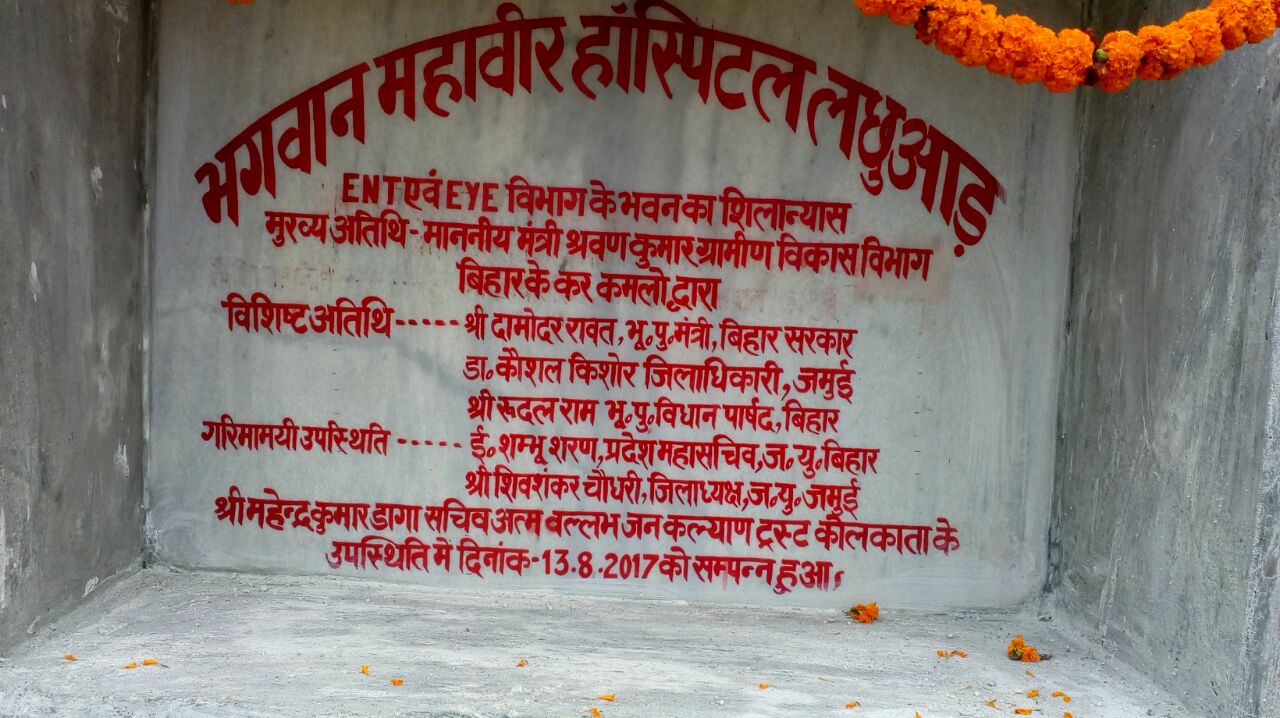 भगवान महावीर हॉस्पिटल लछुआड़
ENT एवं EYE विभाग के भवन का शिलान्यास
मुख्य अतिथि - माननीय मंत्री श्रवण कुमार ग्रामीण विकास विभाग
बिहार के कर कमलो द्वारा
विशिष्ट अतिथि ----- श्री दामोदर रावत, भू॰ पु॰ मंत्री, बिहार सरकार
डा॰ कौशल किशोर जिलाधिकारी, जमुई
श्री रूदल राम भू॰ पु॰ विधान पार्षद, बिहार
गरिमामयी उपस्थिति ----- ई॰ शम्भू शरण, प्रदेश महासचिव, ज॰ यु॰ बिहार
श्री शिवशंकर चौधरी, जिलाध्यक्ष, ज॰ यु॰ जमुई
श्री महेन्द्र कुमार डागा सचिव अत्म बल्लभ जन कल्याण ट्रस्ट कोलकाता के
उपस्थिति में दिनांक - 13.8.2017 को सम्पन्न हुआ।